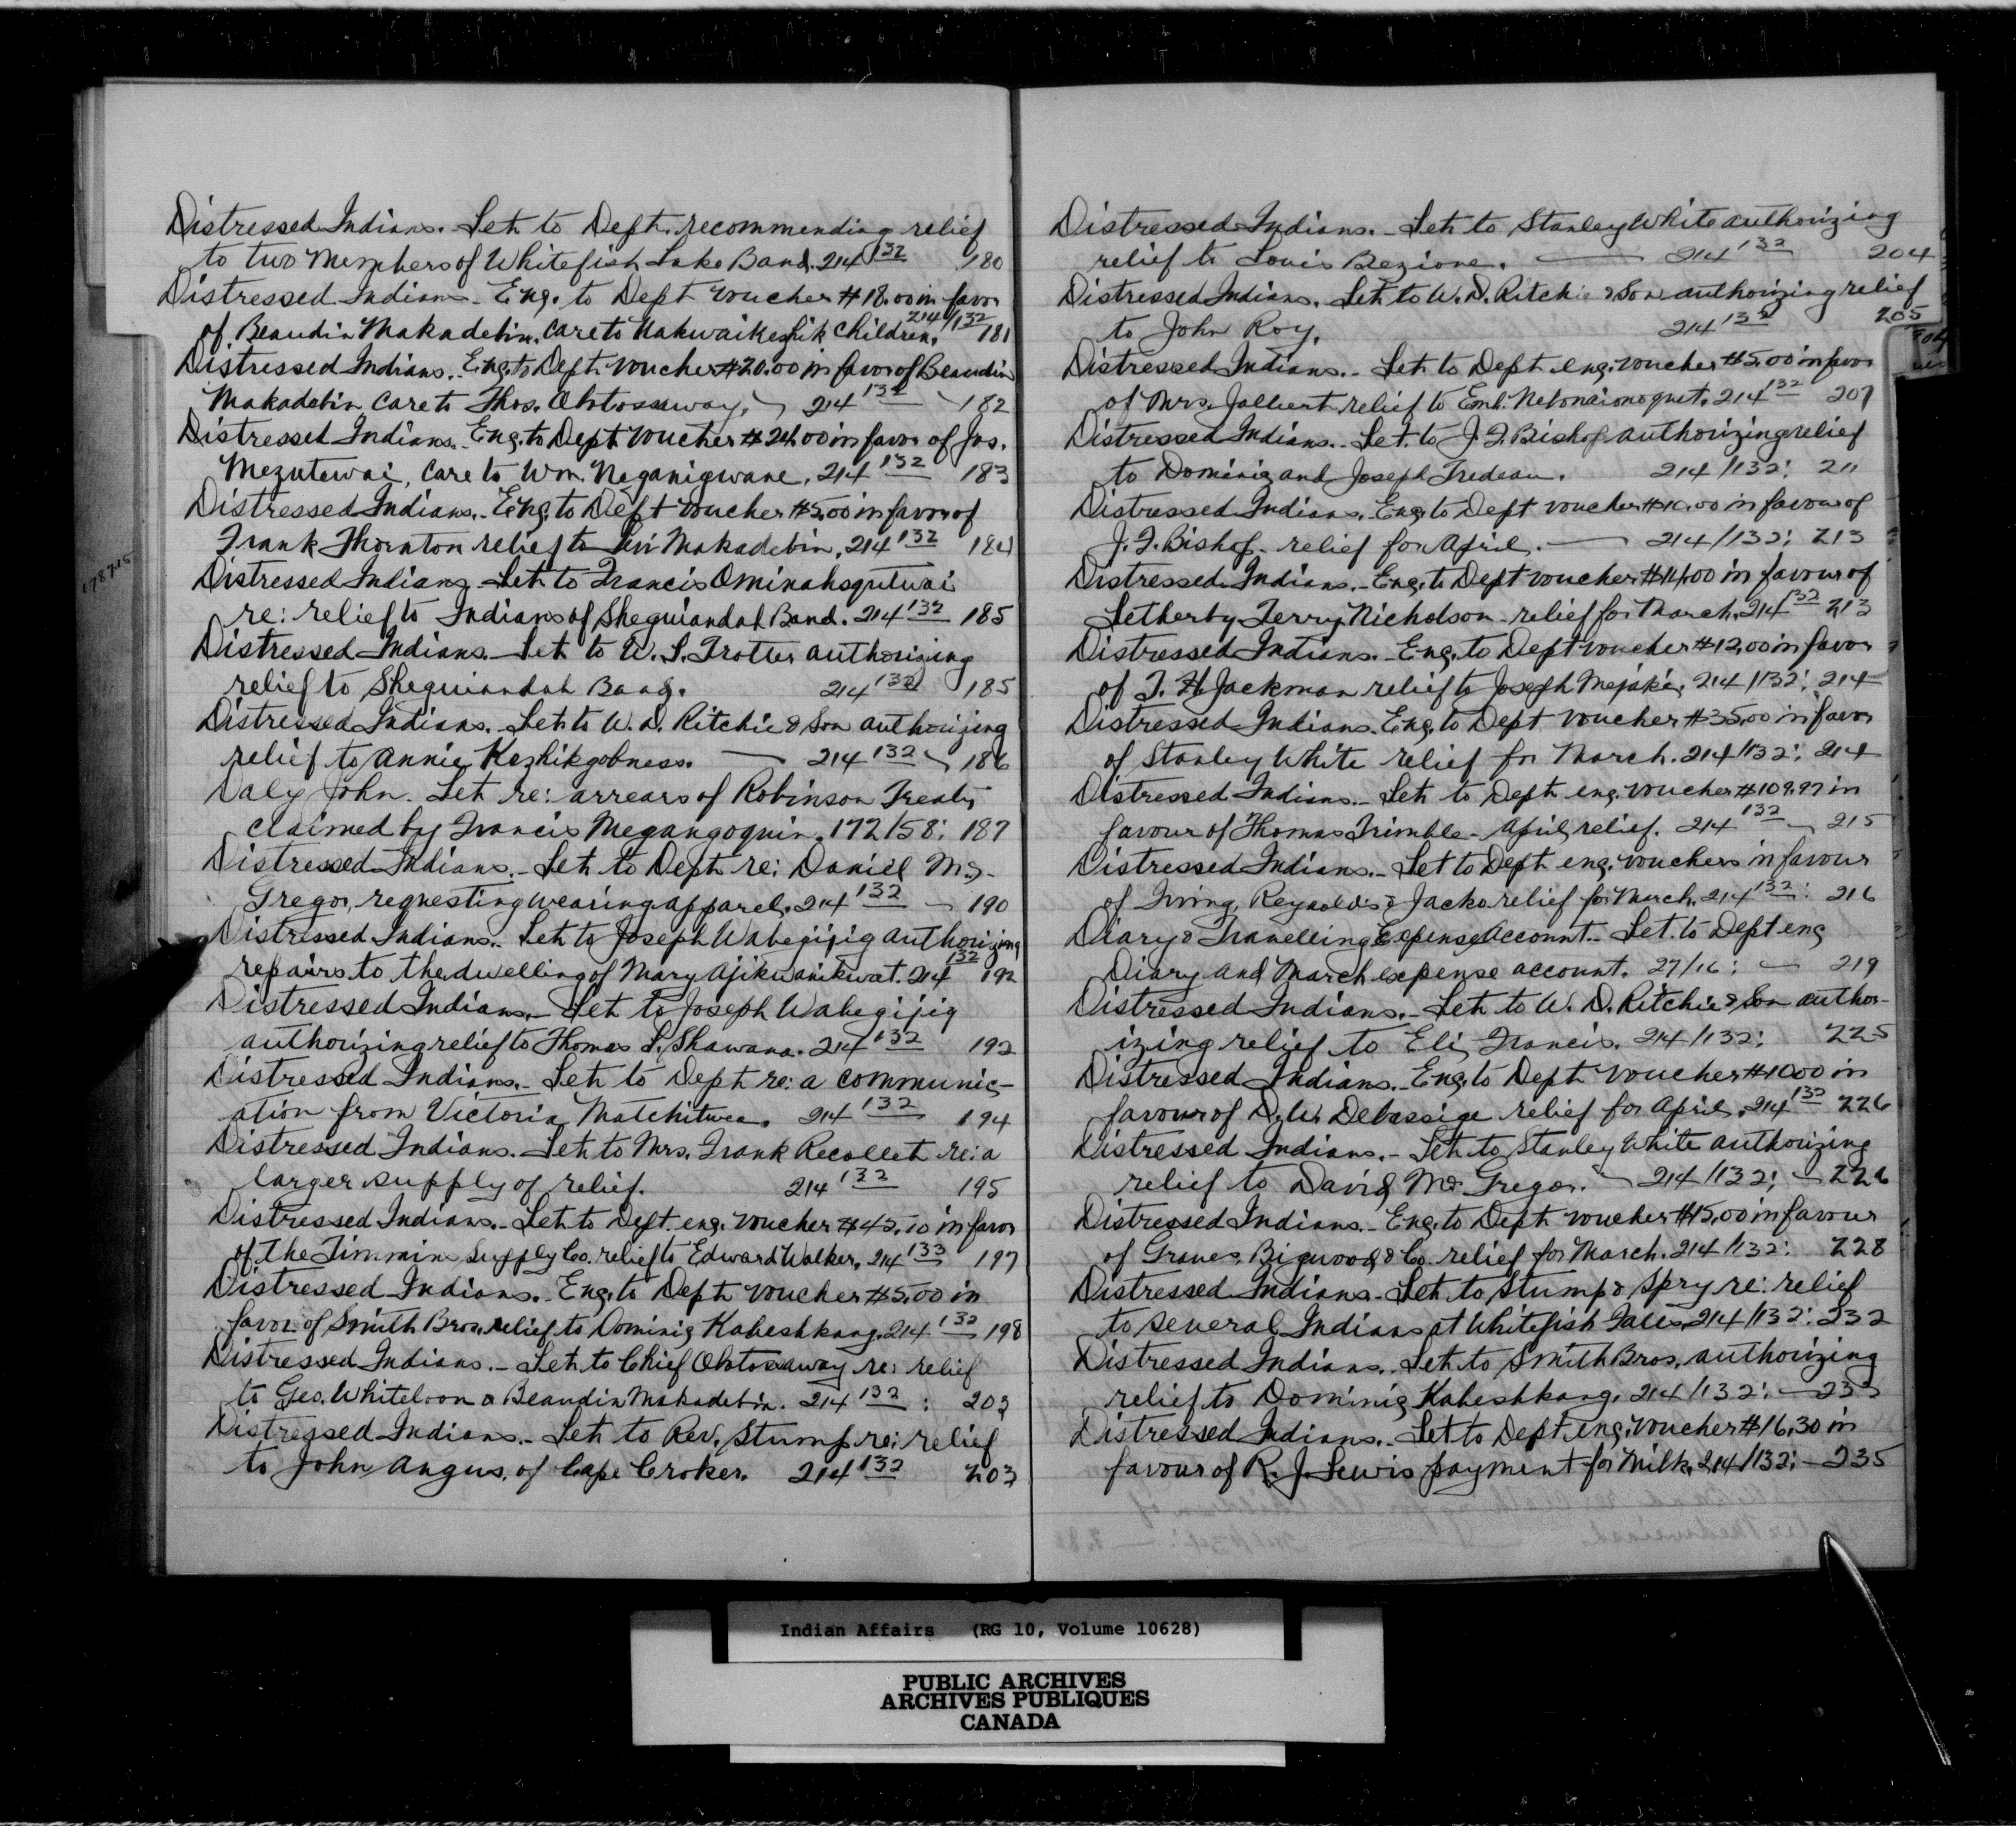 Distressed Indians. Let. to Dept. recommending relief
to two Members of Whitefish Lake Band. 214 132 180
Distressed Indians. Eng. to Dept voucher $18.00 in favor
of Beaudin Makadebin. care to Kakwaikeshik Children. 214/132 181
Distressed Indians. Eng. to Dept voucher $20.00 in favor of Beaudin
Makadebin, care to Thos. Obtossaway. 214 132 182
Distressed Indians. Eng. to Dept voucher $24.00 in favor of Jos.
Mezutewai, care to Wm. Neganigwane. 214 132 183
Distressed Indians. Eng. to Dept voucher $5.00 in favor of
Frank Thornton relief to Levi Makadebin. 214 132 184
Distressed Indians. Let. to Francis Ominahsqutwai
re: relief to Indians of Sheguiandah Band. 214 132 185
Distressed Indians. Let. to W. S. Trotter authorizing
relief to Sheguiandah Band. 214 132 185
Distressed Indians. Let. to W. D. Ritchie & Son authorizing
relief to Annie Kezhikgobness. 214 132 186
Daly John. Let. re: arrears of Robinson Treaty
claimed by Francis Megangoquin. 172/58: 187
Distressed Indians. Let. to Dept re: Daniel Mc-
Gregor, requesting wearing apparel. 214 132 190
Distressed Indians. Let. to Joseph Wabegijig authorizing
repairs to the dwelling of Mary Ajikwanikwat. 214 132 192
Distressed Indians. Let. to Joseph Wabegijig
authorizing relief to Thomas S. Shawana. 214 132 192
Distressed Indians. Let. to Dept re: a communic-
ation from Victoria Matchitwea. 214 132 194
Distressed Indians. Let. to Mrs. Frank Recollet re: a
larger supply of relief. 214 132 195
Distressed Indians. Let. to Dept. eng. voucher $45.10 in favor
of The Timmins Supply Co. relief to Edward Walker. 214 133 197
Distressed Indians. Eng. to Dept voucher $5.00 in
favor of Smith Bros. relief to Dominig Kabeshkang. 214 132 198
Distressed Indians. Let. to Chief Obtossaway re: relief
to Geo. Whiteloon & Beaudin Makadebin. 214 132 : 203
Distressed Indians. Let. to Rev. Stump re: relief
to John Angus, of Cape Croker. 214 132 203
Distressed Indians. Let. to Stanley White authorizing
relief to Louis Bezione. 214 132 204
Distressed Indians. Let. to W. D. Ritchie & Son authorizing relief
to John Roy. 214 132 205
Distressed Indians. Let. to Dept eng. voucher $5.00 in favor
of Mrs. Jalbert relief to Emb. Nebonaionoquet. 214 132 207
Distressed Indians. Let. to J. F. Bishop authorizing relief
to Dominig and Joseph Trudeau. 214/132: 211
Distressed Indians. Eng. to Dept voucher $10.00 in favour of
J. F. Bishop relief for April. 214/132: 213
Distressed Indians. Eng. to Dept voucher $14.00 in favour of
Letherby Terry Nicholson relief for March. 214 132 213
Distressed Indians. Eng. to Dept voucher $12.00 in favor
of T. H. Jackman relief to Joseph Mejaki. 214/132: 214
Distressed Indians. Eng. to Dept voucher $35.00 in favor
of Stanley White relief for March. 214/132: 214
Distressed Indians. Let. to Dept eng. voucher $109.97 in
favour of Thomas Trimble April relief. 214 132 215
Distressed Indians. Let. to Dept eng. vouchers in favour
of Irving, Reynolds & Jacko relief for March. 214 132: 216
Diary & Travelling Expense Account. Let. to Dept eng
Diary and March expense account. 27/16: 219
Distressed Indians. Let. to W. D. Ritchie & Son author-
izing relief to Eli Francis. 214/132: 225
Distressed Indians. Eng. to Dept voucher $10.00 in
favour of D. W. Debassige relief for April. 214 132 226
Distressed Indians. Let. to Stanley White authorizing
relief to David McGregor. 214/132: 226
Distressed Indians. Eng. to Dept voucher $15.00 in favour
of Graves, Bigwood & Co. relief for March. 214/132: 228
Distressed Indians. Let. to Stump & Spry re: relief
to several Indians at Whitefish Falls. 214/132: 232
Distressed Indians. Let. to Smith Bros. authorizing
relief to Dominig Kabeshkang. 214/132: 233
Distressed Indians. Let. to Dept. eng. voucher $16.30 in
favour of R. J. Lewis payment for Milk. 214/132: 235
Indian Affairs (RG 10, Volume 10628)
PUBLIC ARCHIVES
ARCHIVES PUBLIQUES
CANADA